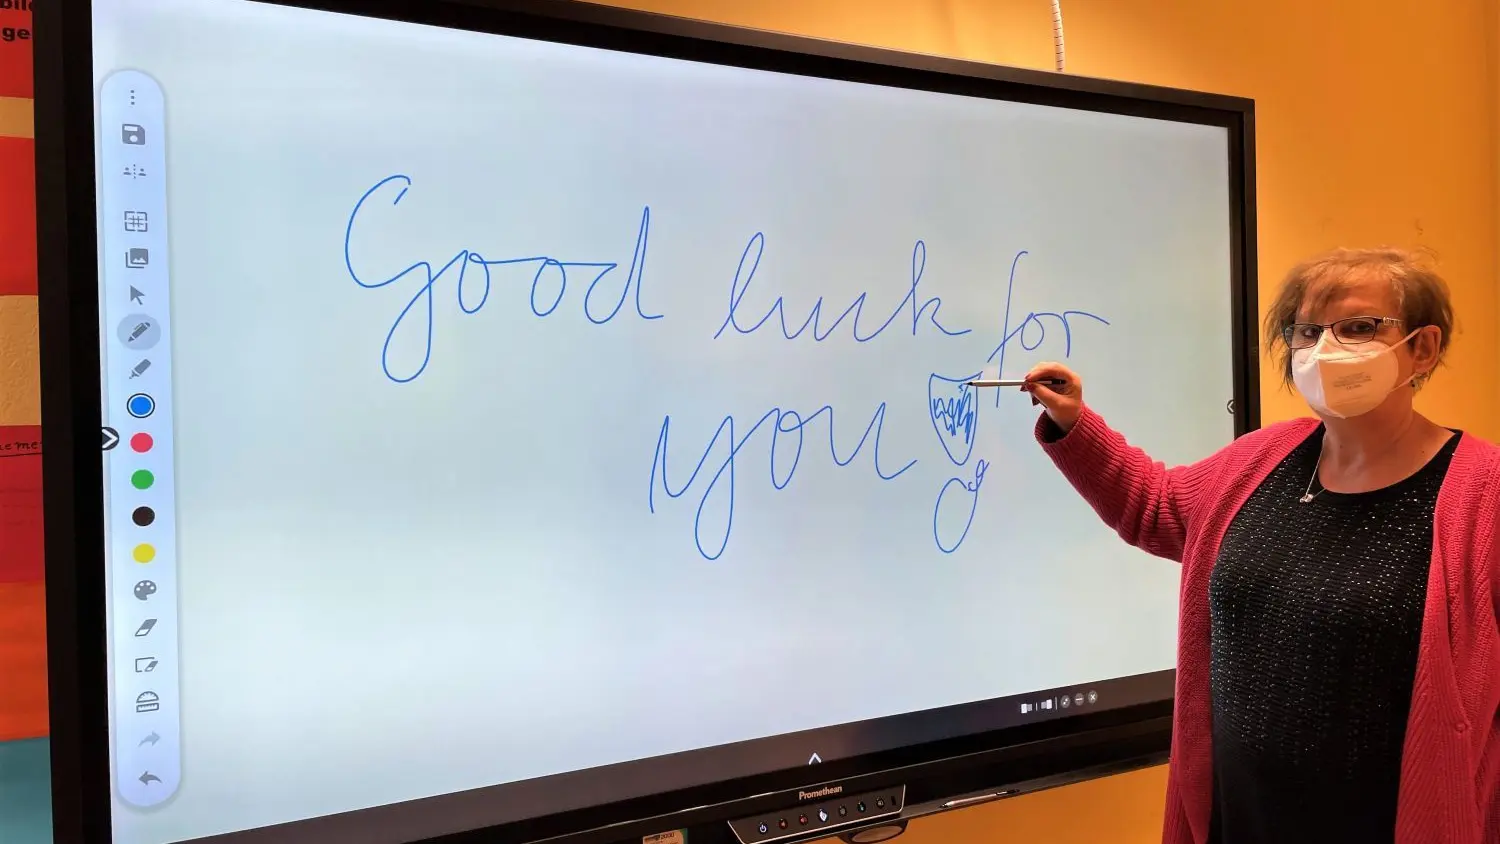 Good luck for
you!
Promethean